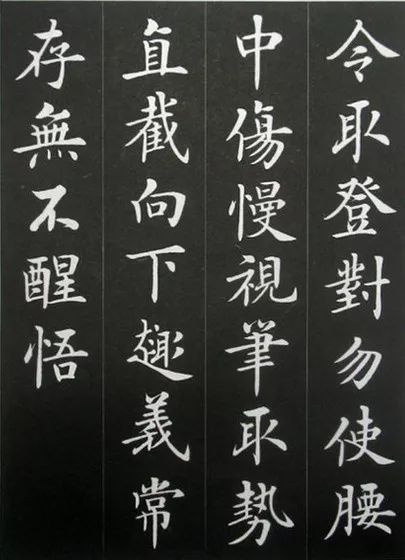 令取登對勿使腰
中傷慢視筆取勢
直截向下趣義常
存無不醒悟